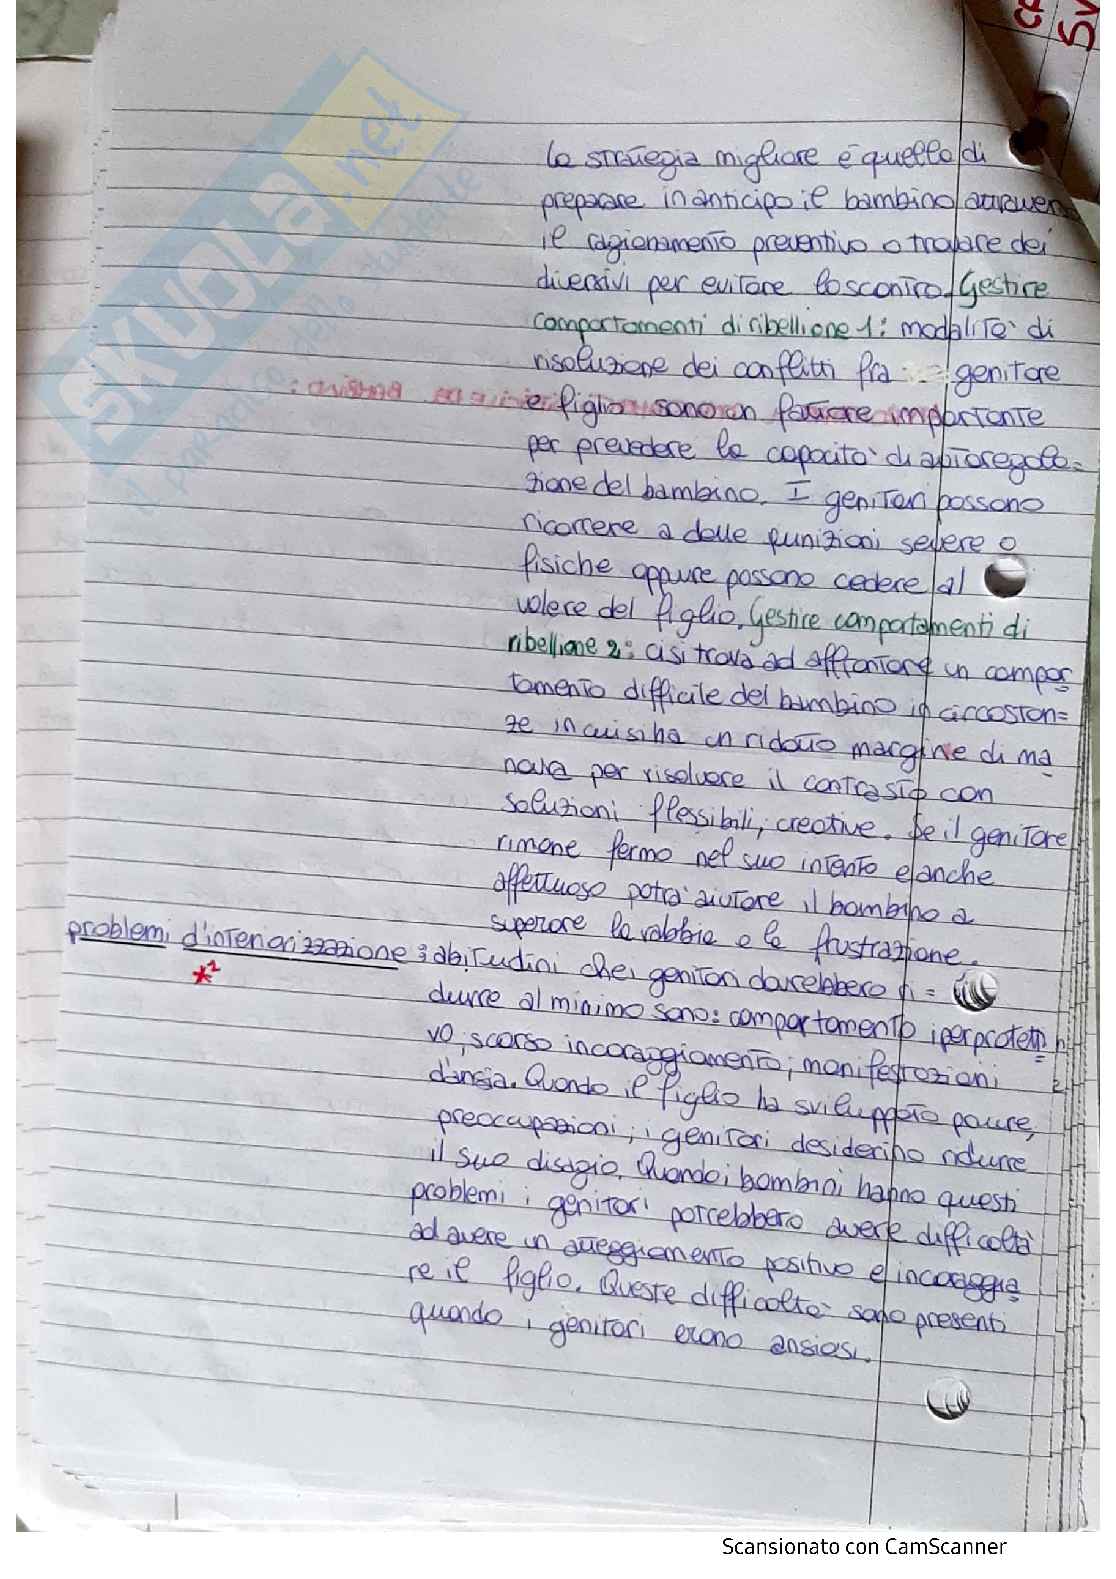 CA
SV
SKUOLA.net
il paradiso dello studente
la strategia migliore è quella di
preparare in anticipo il bambino attraverso
il ragionamento preventivo o trovare dei
diversivi per evitare lo scontro. Gestire
comportamenti di ribellione 1: modalità di
risoluzione dei conflitti fra genitore
e figlio sono un fattore importante
per prevedere la capacità di autoregola=
zione del bambino. I genitori possono
ricorrere a delle punizioni severe o
fisiche oppure possono cedere al
volere del figlio. Gestire comportamenti di
ribellione 2: ci si trova ad affrontare un compor
tamento difficile del bambino in circostan=
ze in cui si ha un ridotto margine di ma
novra per risolvere il contrasto con
soluzioni flessibili, creative. Se il genitore
rimane fermo nel suo intento e anche
affettuoso potrà aiutare il bambino a
superare la rabbia e la frustrazione.
problemi d'interiorizzazione: abitudini che i genitori dovrebbero ri=
*2
durre al minimo sono: comportamento iperprotetti
vo, scarso incoraggiamento, manifestazioni
d'ansia. Quando il figlio ha sviluppato paure,
preoccupazioni, i genitori desiderino ridurre
il suo disagio. Quando i bambini hanno questi
problemi i genitori potrebbero avere difficoltà
ad avere un atteggiamento positivo e incoraggia
re il figlio. Queste difficoltà sono presenti
quando i genitori erano ansiosi.
Scansionato con CamScanner